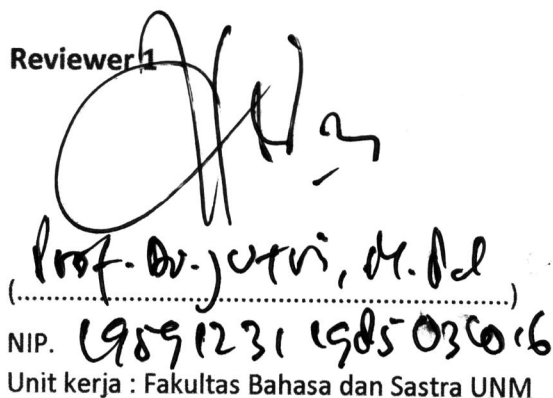 Reviewer 1
Prof. Dr. Jufri, M.Pd
(......................................................................)
NIP. 19591231 198503 1 016
Unit kerja : Fakultas Bahasa dan Sastra UNM